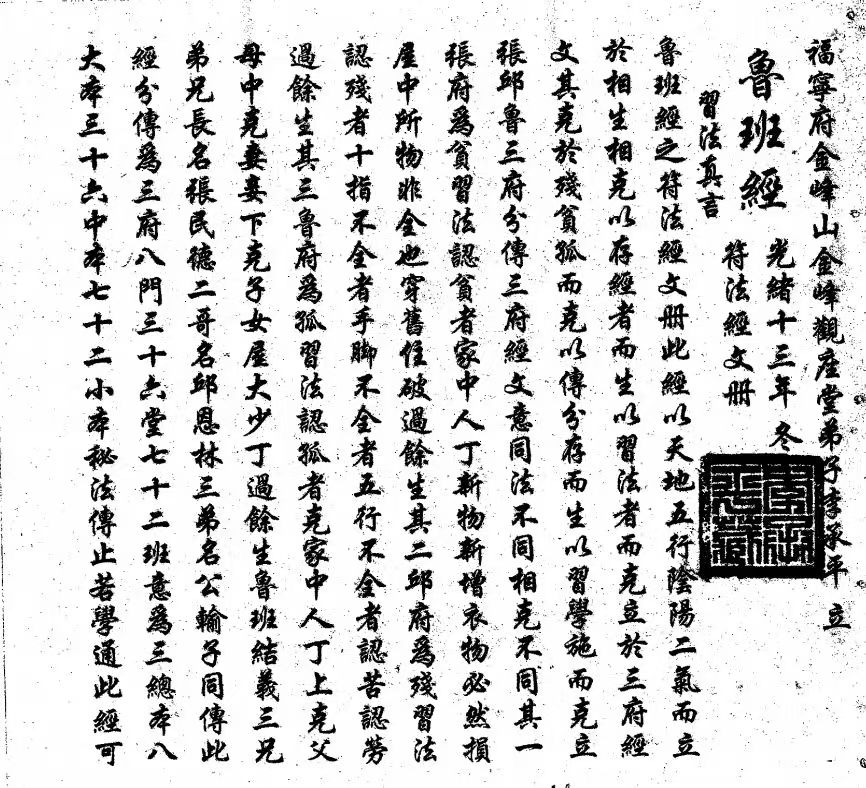 福寧府金峰山金峰觀座堂弟子李承平立
魯班經
光緒十三年冬
符法經文册
習法真言
魯班經之符法經文册此經以天地五行陰陽二氣而立
於相生相克以存經者而生以習法者而克立於三府經
文其克於殘貧孤而克以傳分存而生以習學施而克立
張邱魯三府分傳三府經文意同法不同相克不同其一
張府為貧習法認貧者家中人丁新物新增衣物必然損
屋中所物非全也穿舊住破過餘生其二邱府為殘習法
認殘者十指不全者手脚不全者五行不全者認苦認勞
過餘生其三魯府為孤習法認孤者克家中人丁上克父
母中克妻妾下克子女屋大少丁過餘生魯班結義三兄
弟兄長名張民德二哥名邱恩林三弟名公輸子同傳此
經分傳為三府八門三十六堂七十二班意為三總本八
大本三十六中本七十二小本秘法傳止若學通此經可